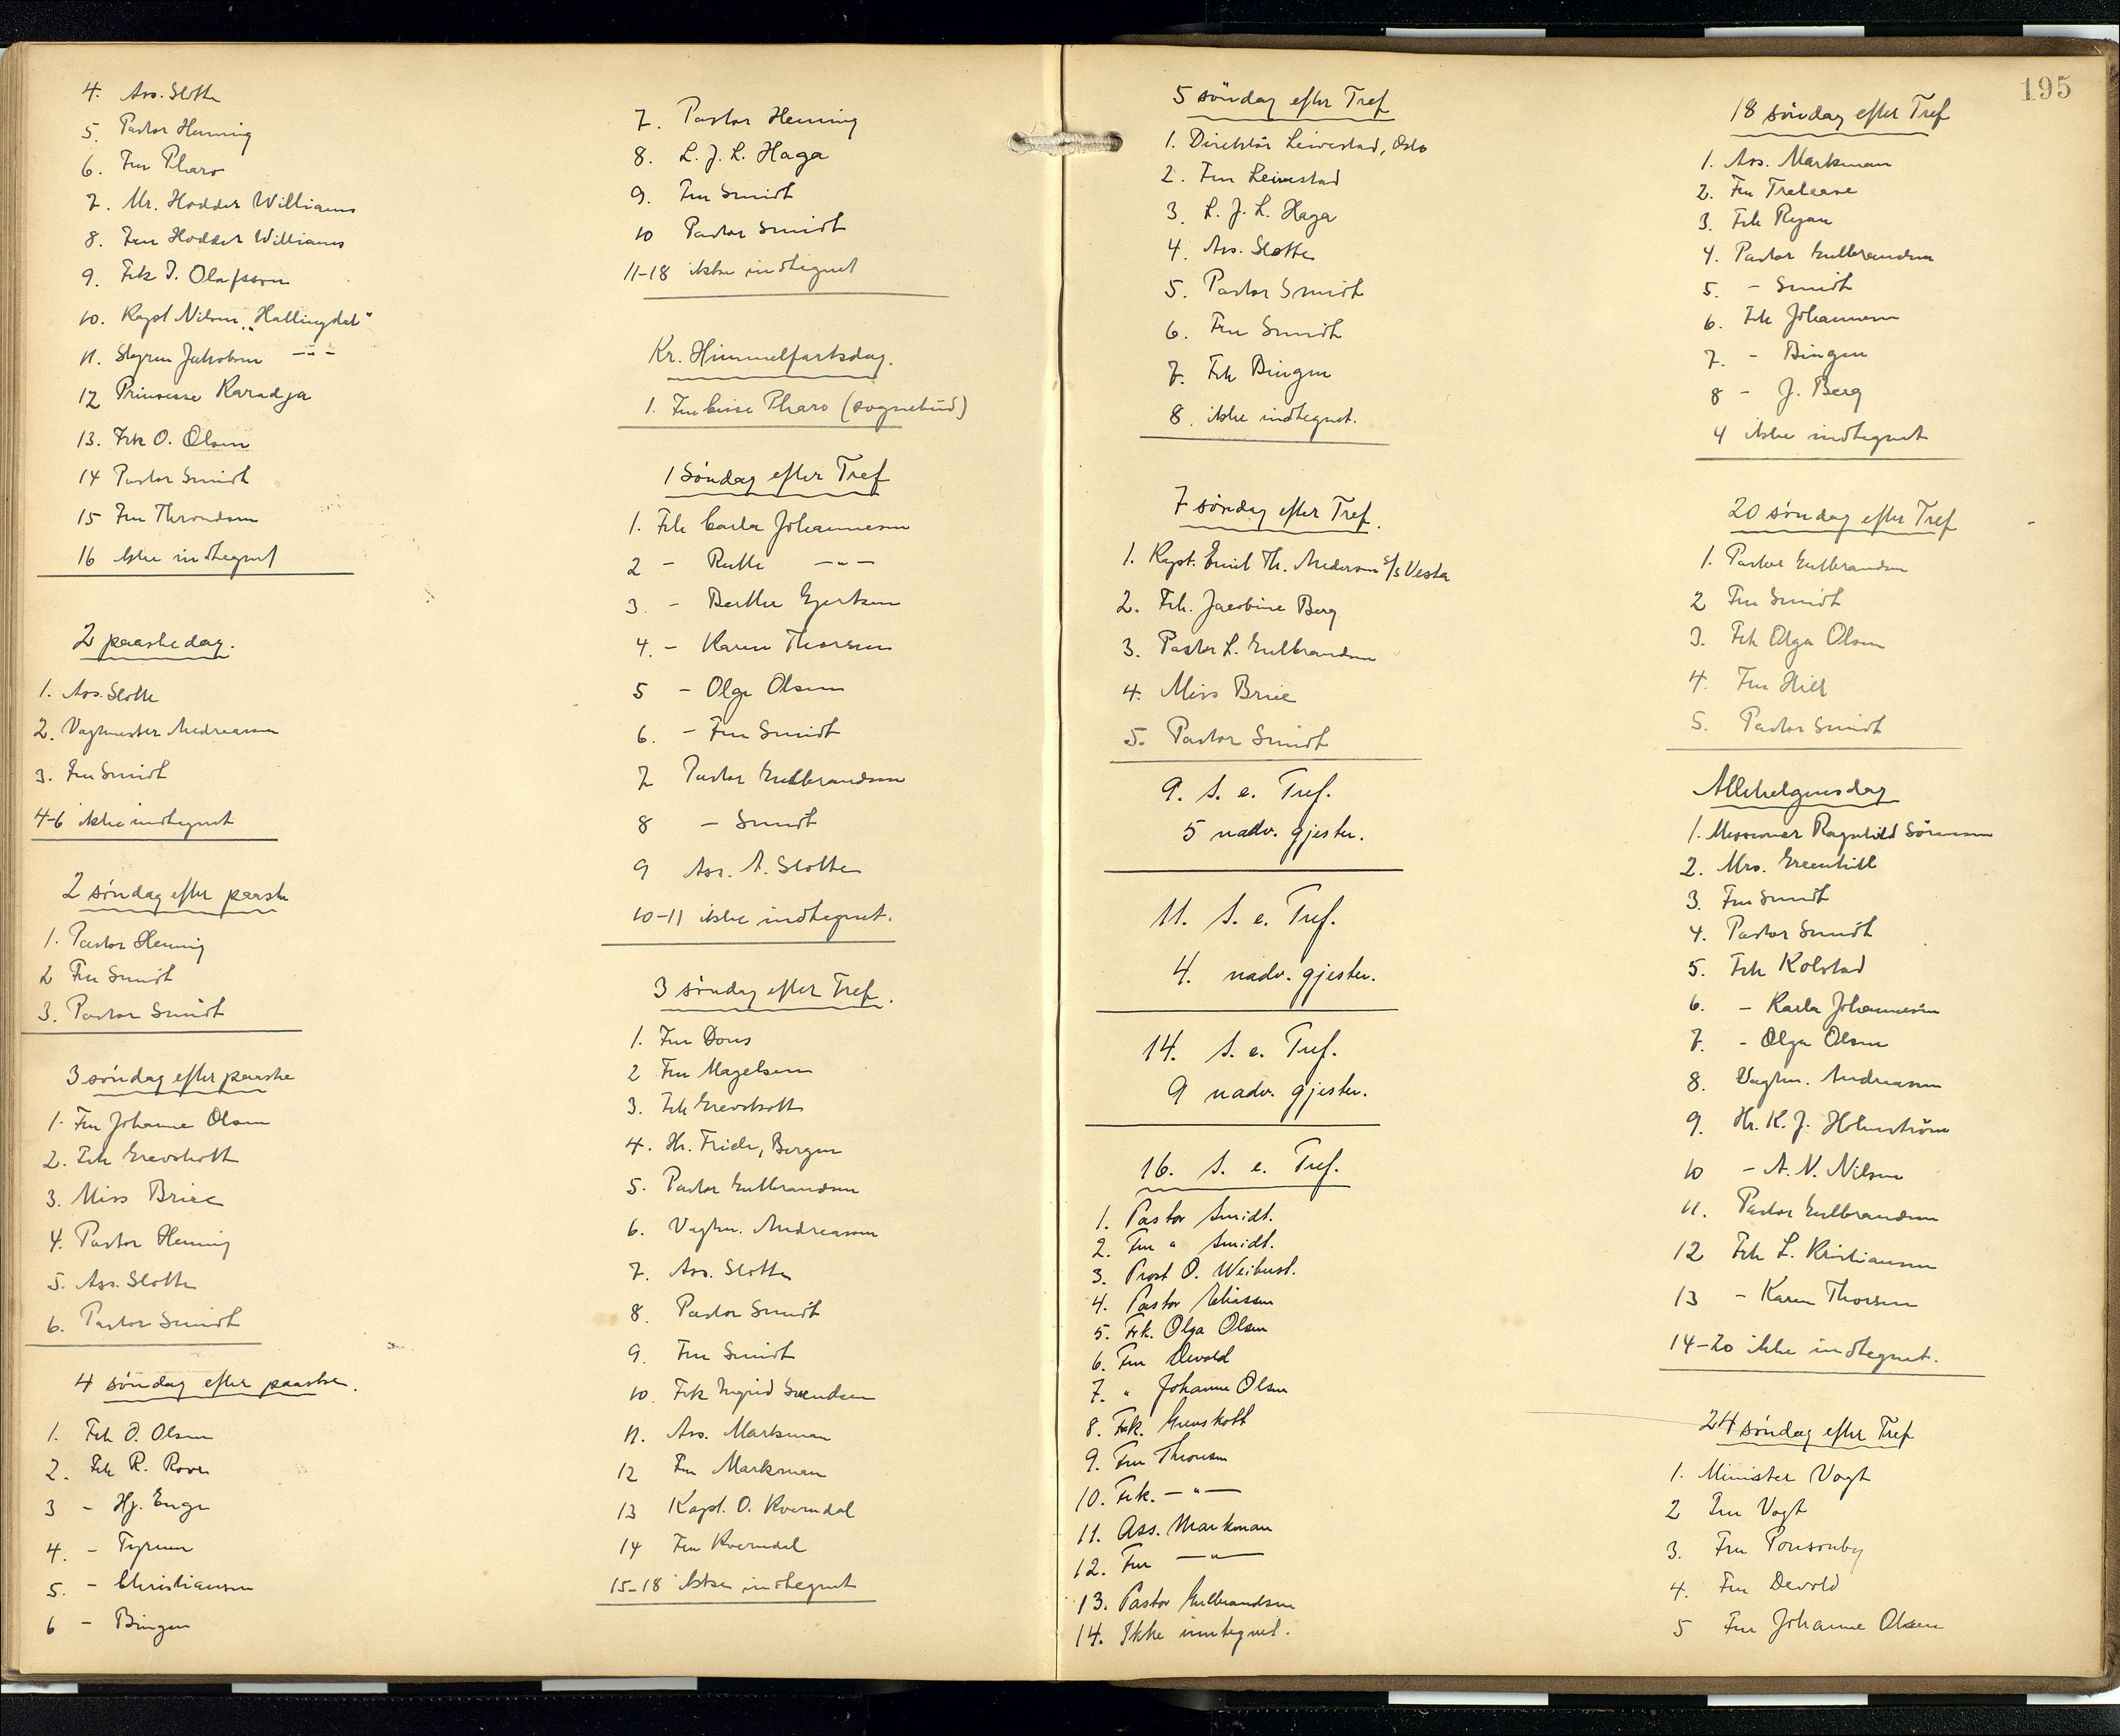 4. Ass. Slotte
5. Pastor Henning
6. Fru Pharo
7. Mr. Hodder Williams
8. Fru Hodder Williams
9. Frk J. Olafsson
10. Kapt Nilsen „Hallingdal"
11. Styrm Jakobsen -"-
12 Prinsesse Karadja
13. Frk O. Olsen
14 Pastor Smidt
15 Fru Throndsen
16 ikke indtegnet
2 paaskedag.
1. Ass. Slotte
2. Vagtmester Andreassen
3. Fru Smidt
4-6 ikke indtegnet
2 søndag efter paaske
1. Pastor Henning
2 Fru Smidt
3. Pastor Smidt
3 søndag efter paaske
1. Fru Johanne Olsen
2. Frk Grevskott
3. Miss Brice
4. Pastor Henning
5. Ass. Slotte
6. Pastor Smidt
4 søndag efter paaske.
1. Frk O. Olsen
2. Frk R. Rover
3 - Hj. Enge
4. -
5. - Christiansen
6 - Bingen
7. Pastor Henning
8. L. J. L. Haga
9. Fru Smidt
10 Pastor Smidt
11-18 ikke indtegnet
Kr. Himmelfartsdag.
1. Fru Lisse Pharo (sognebud)
1 Søndag efter Tref
1. Frk Carla Johannesen
2 - Ruth -"-
3. - Berthe Gjertsen
4. - Karen Thorsen
5 - Olga Olsen
6. - Fru Smidt
7 Pastor Gulbrandsen
8 - Smidt
9 Ass. A. Slotte
10-11 ikke indtegnet.
3 søndag efter Tref.
1. Fru Dons
2 Fru Magelsen
3. Frk Grevskott
4. Hr. Friele, Bergen
5. Pastor Gulbrandsen
6. Vagtm. Andreassen
7. Ass. Slotte
8. Pastor Smidt
9. Fru Smidt
10. Frk Ingrid Svendsen
11. Ass. Markman
12 Fru Markman
13 Kapt. O. Kverndal
14 Fru Kverndal
15-18 ikke indtegnet
195
5 søndag efter Tref
1. Direktør Leivestad, Oslo
2. Fru Leivestad
3. L. J. L. Haga
4. Ass. Slotte
5. Pastor Smidt
6. Fru Smidt
7. Frk Bingen
8. ikke indtegnet.
7 søndag efter Tref.
1. Kapt. Emil Th. Andersen s/s Vesta
2. Frk. Jacobine Berg
3. Pastor L. Gulbrandsen
4. Miss Brice
5. Pastor Smidt
9. s. e. Tref.
5 nadv. gjester.
11. s. e. Tref.
4. nadv. gjester.
14. s. e. Tref.
9 nadv. gjester.
16. s. e. Tref.
1. Pastor Smidt.
2. Fru " Smidt.
3. Prost O. Weibust.
4. Pastor Eliassen
5. Frk. Olga Olsen
6. Fru Devold
7. " Johanne Olsen
8. Frk. Grevskott
9. Fru Thronsen
10. Frk. -"-
11. Ass. Markman
12. Fru -"-
13. Pastor Gulbrandsen
14. Ikke inntegnet.
18 søndag efter Tref
1. Ass. Markman
2. Fru Trelease
3. Frk Ryan
4. Pastor Gulbrandsen
5. - Smidt
6. Frk Johannesen
7. - Bingen
8 - J. Berg
4 ikke indtegnet
20 søndag efter Tref
1. Pastor Gulbrandsen
2 Fru Smidt
3. Frk Olga Olsen
4. Fru Hill
5. Pastor Smidt
Allehelgensdag
1. Missionær Ragnhild Sørensen
2. Mrs. Greenhill
3. Fru Smidt
4. Pastor Smidt
5. Frk Kolstad
6. - Karla Johannesen
7. - Olga Olsen
8. Vagtm. Andreassen
9. Hr. K. J. Holmström
10 - A. N. Nilsen
11. Pastor Gulbrandsen
12 Frk L. Kristiansen
13 - Karen Thorsen
14-20 ikke indtegnet.
24 søndag efter Tref
1. Minister Vogt
2 Fru Vogt
3. Fru Ponsonby
4. Fru Devold
5 Fru Johanne Olsen